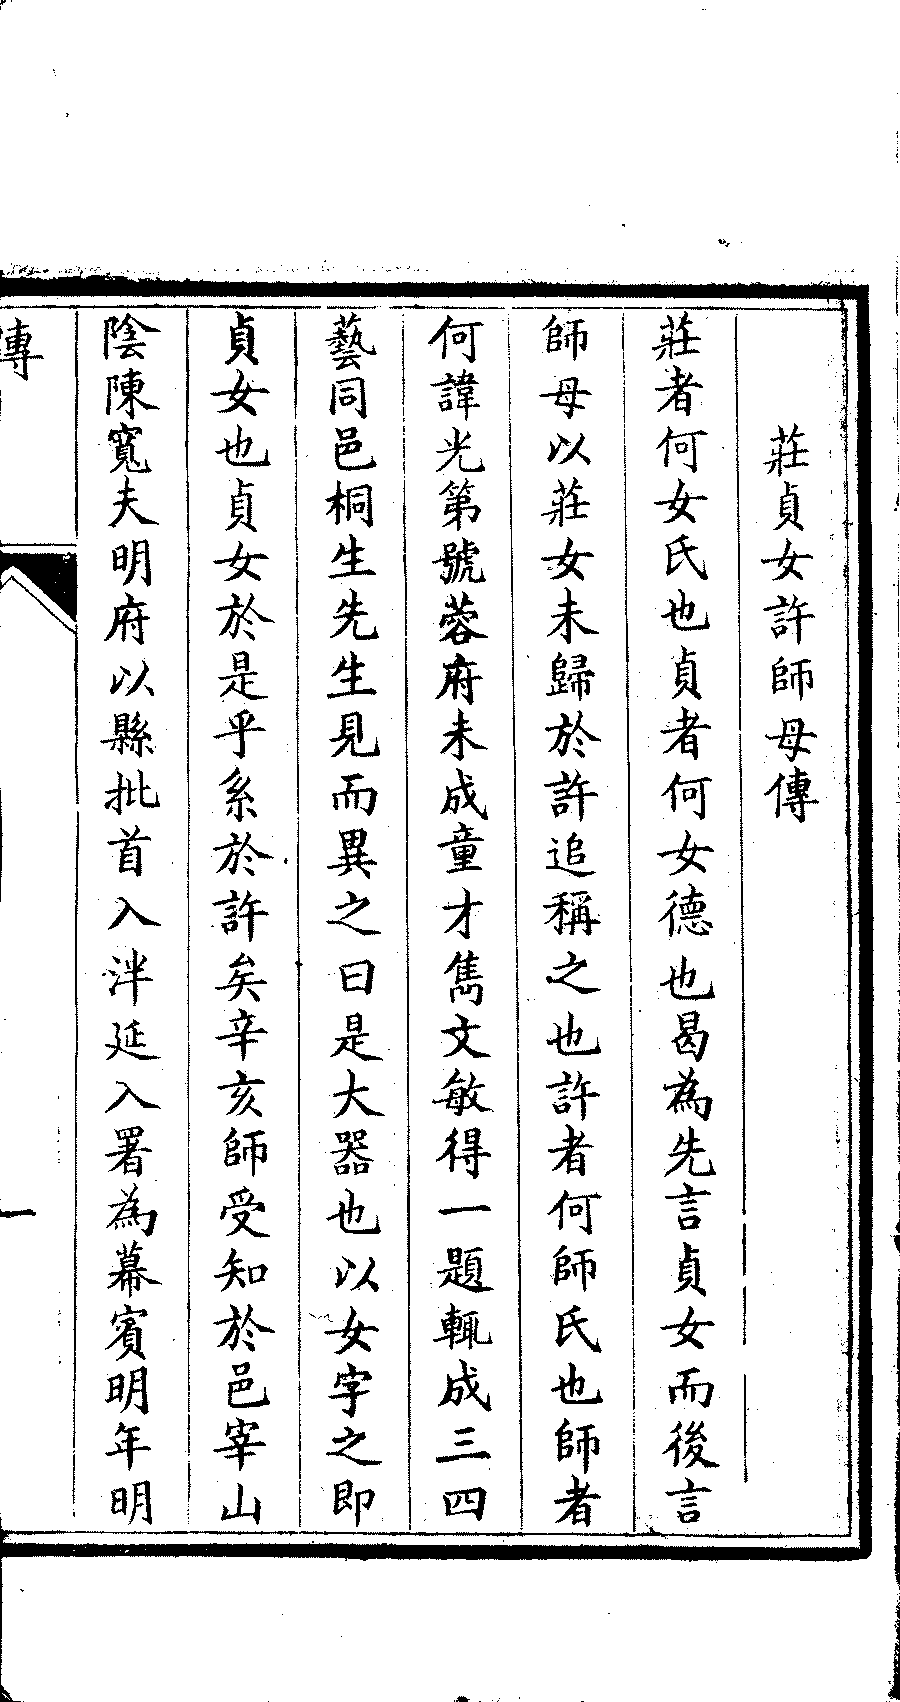 莊貞女許師母傳
莊者何女氏也貞者何女德也曷為先言貞女而後言
師母以莊女未歸於許追稱之也許者何師氏也師者
何諱光第號蓉府未成童才雋文敏得一題輒成三四
藝同邑桐生先生見而異之曰是大器也以女字之即
貞女也貞女於是乎系於許矣辛亥師受知於邑宰山
陰陳寬夫明府以縣批首入泮延入署為幕賓明年明
傳
一